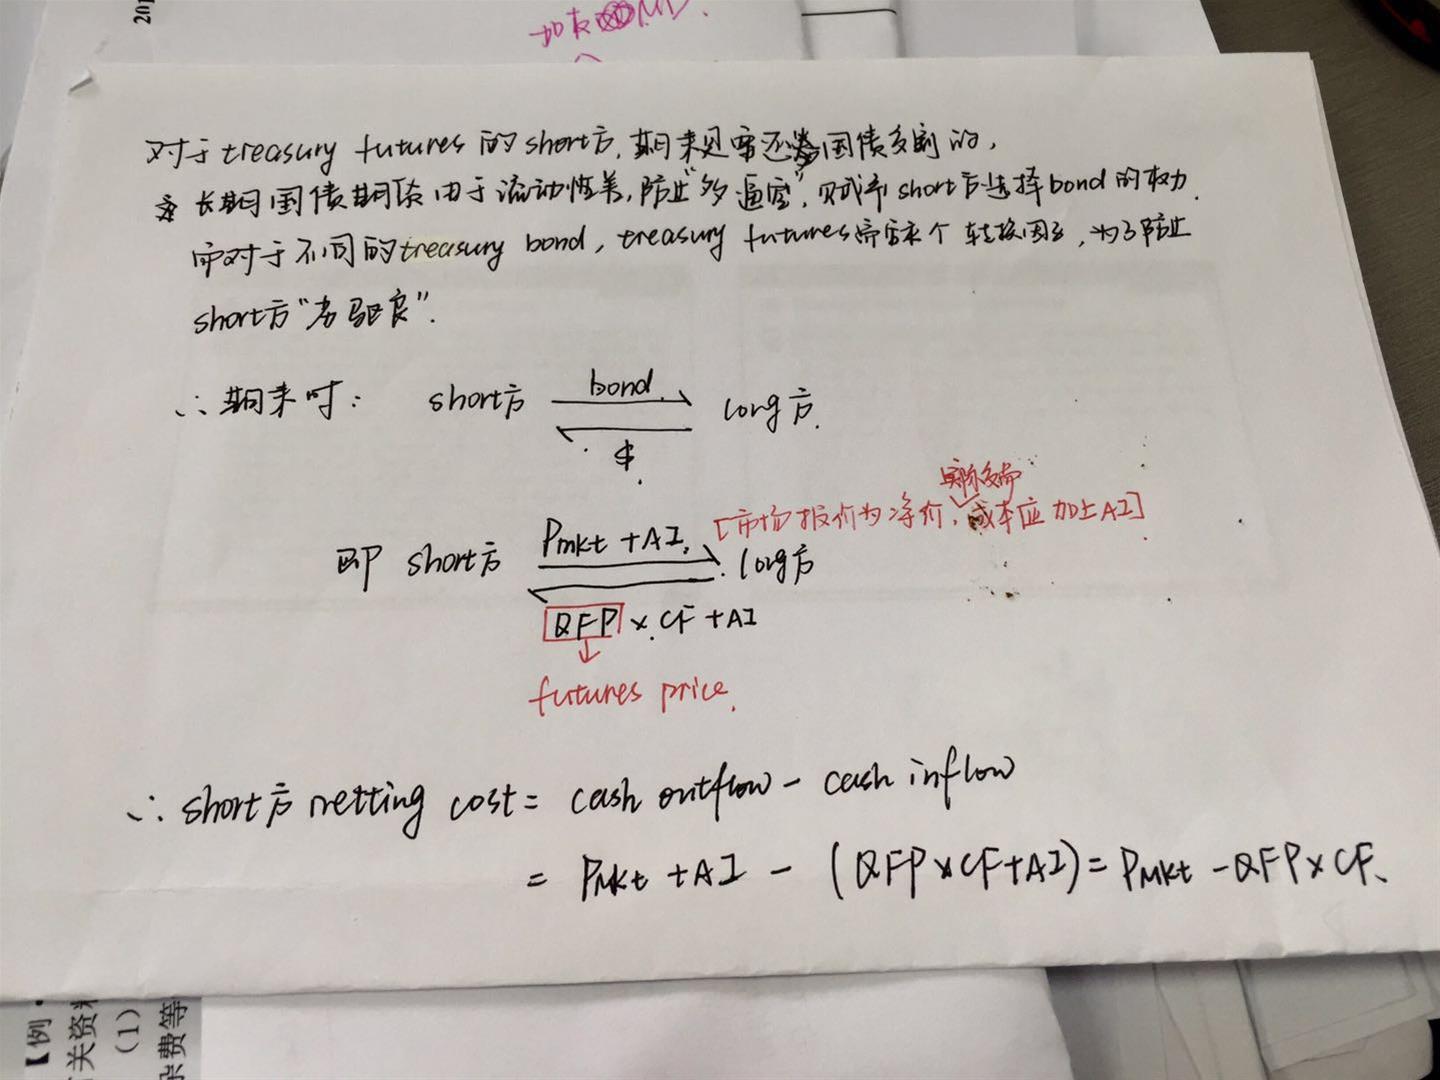 201
对于treasury futures 的short方,期末是需还券国债多头的,
长期国债期货由于流动性差,防止"多逼空",则赋予short方选择bond的权力.
而对于不同的treasury bond, treasury futures需要求个转换因子,为了防止
short方"劣驱良".
∴期末时: short方 bond long方.
$
即 short方 Pmkt + AI long方 [市场报价为净价,实际交割成本应加上AI]
QFP × CF + AI
futures price.
∴ short方 netting cost = cash outflow - cash inflow
= Pmkt + AI - (QFP × CF + AI) = Pmkt - QFP × CF.
【例
关资料
(1)
杂费等